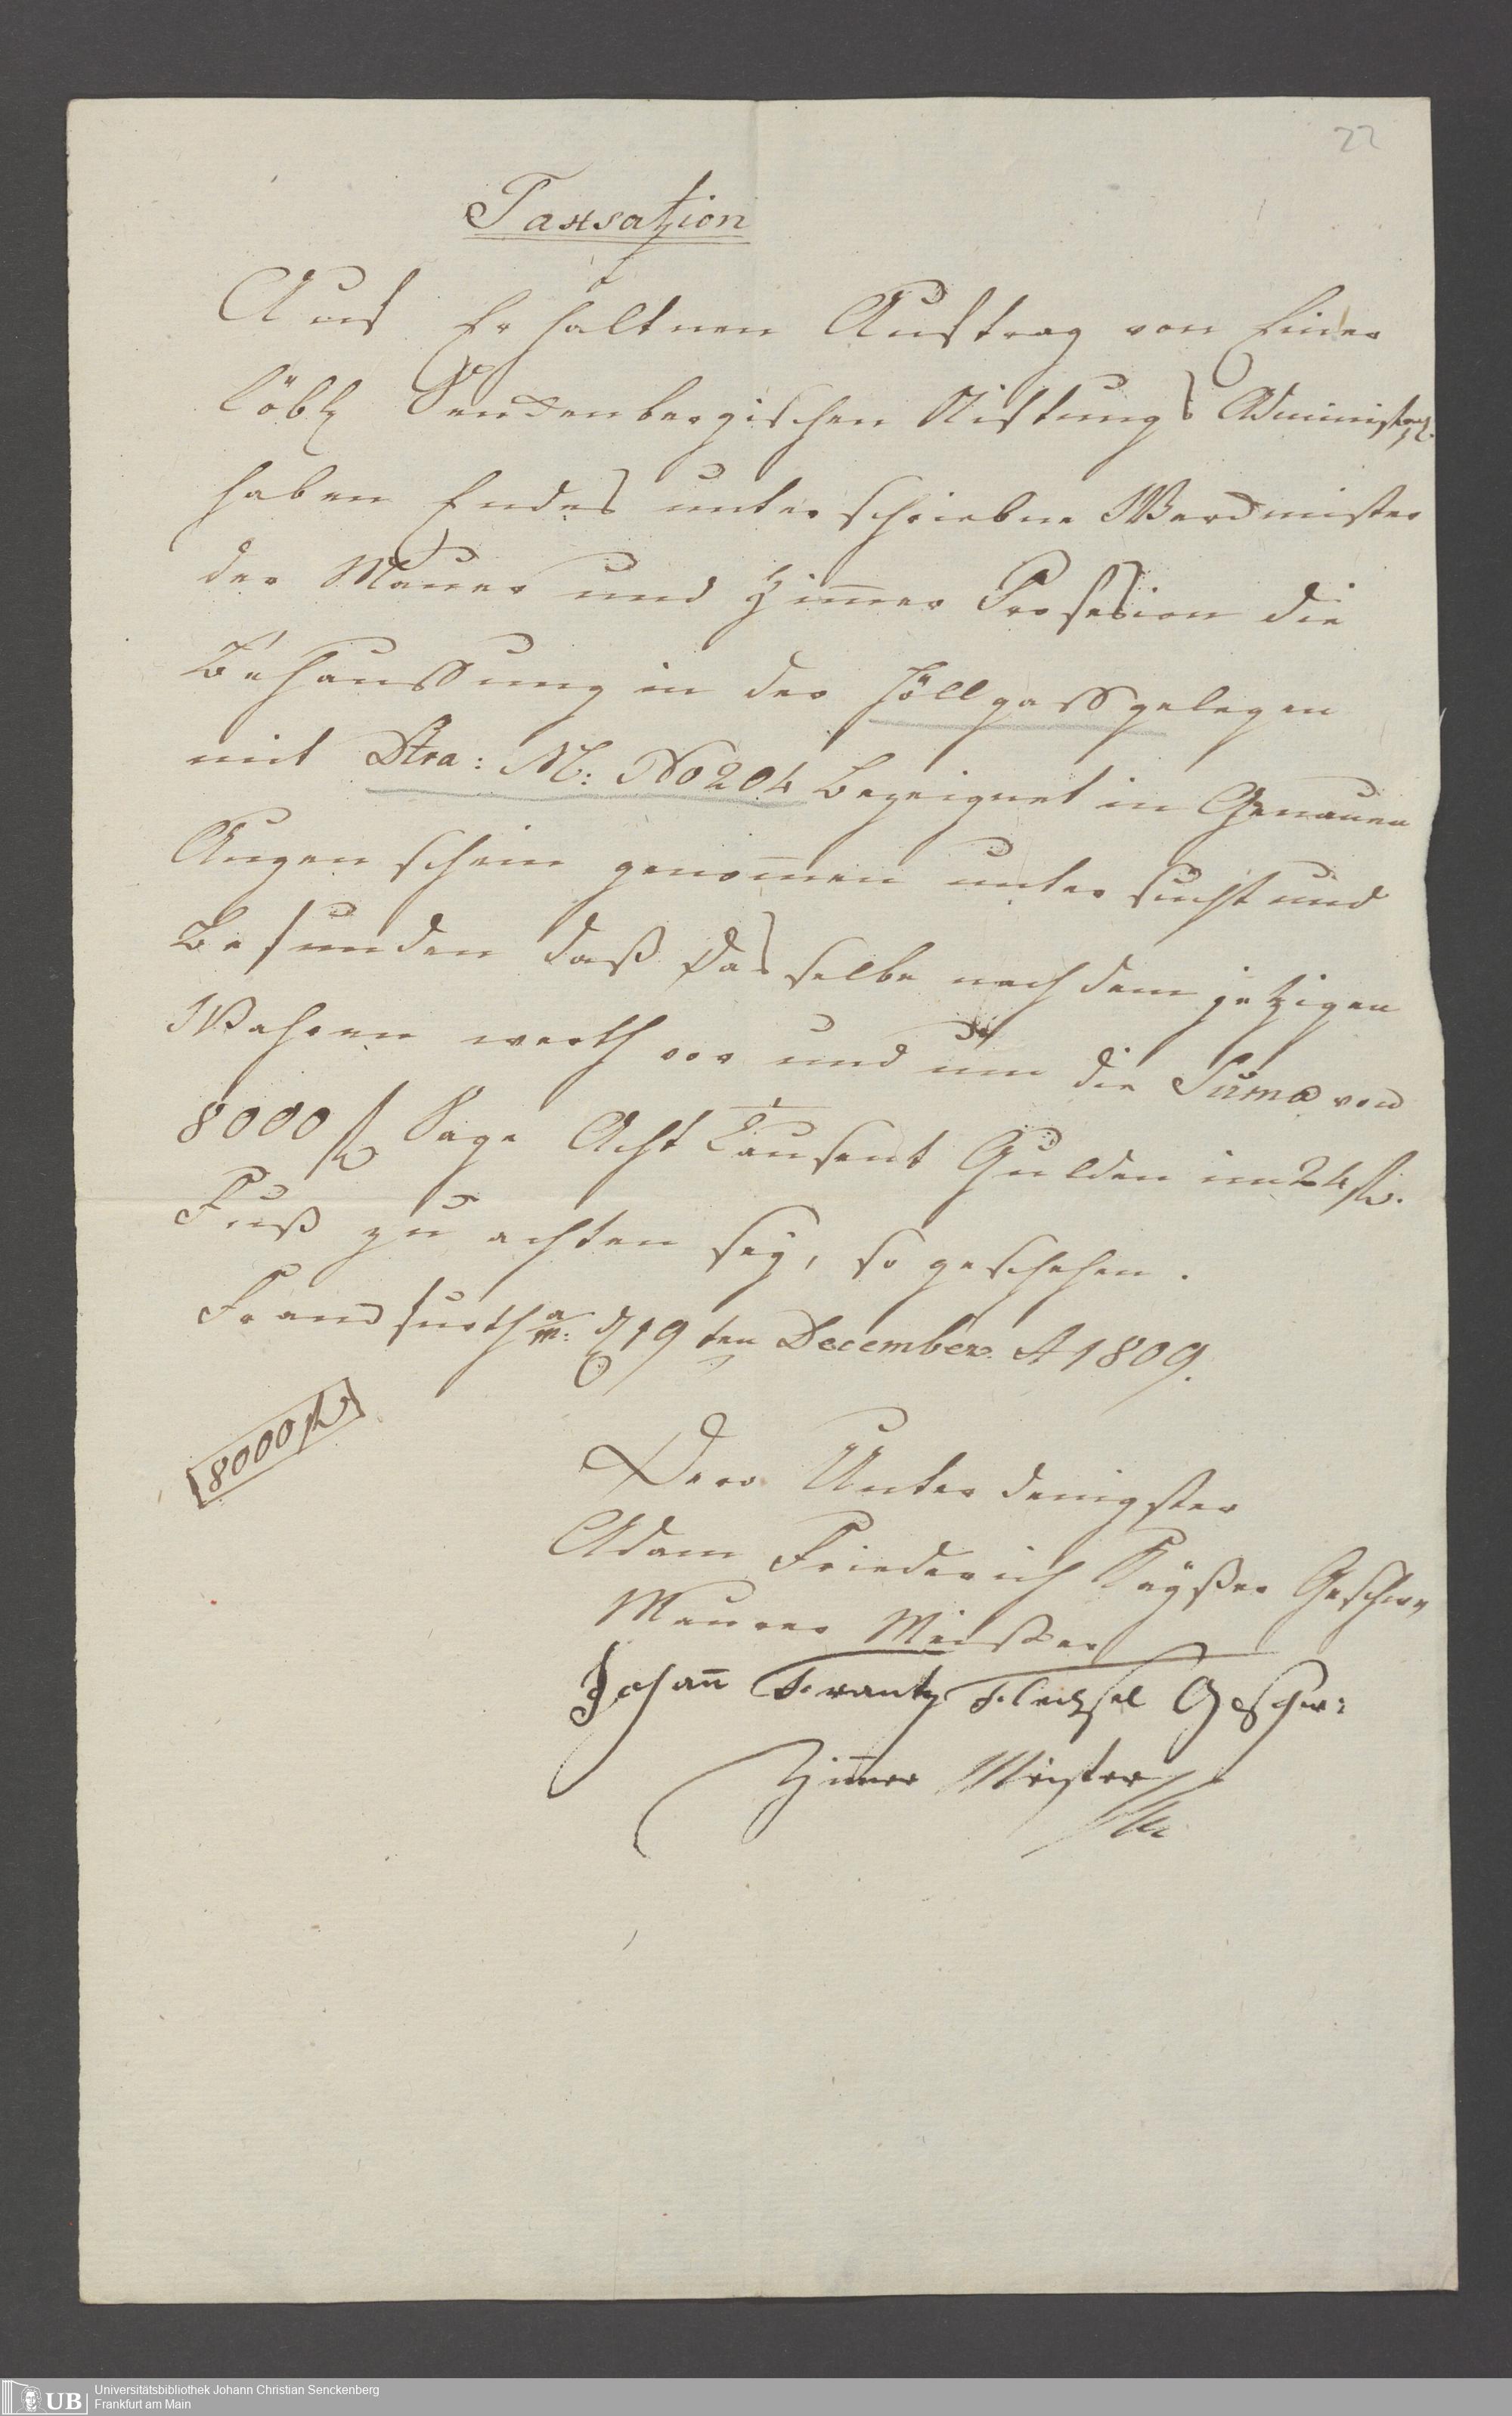 22
Taxsation
Auf Erhaltnen Auftrag von Einer
Löbl Senckenbergischen Stiftungs Administrat.
haben Endes unter schriebne Werckmister
der Maurer und Zim̄er Profesion die
Behaussung in der Höllgass gelegen
mit Litra: M: No 204 bezeignet in Genauen
Augen schein genom̄en unter sucht und
Befunden daß das selbe nach dem jetzigen
Wahren werth vor und um die Suma von
8000 fl Sage Acht Tausent Gulden im 24 fl.
Fuß zu achten sey, so geschehen.
Franckfurth a m: d 19ten December A 1809.
8000 fl
Dero Unter denigster
Adam Friederich Kayßer Geschw
Maurer Meister
Johan̄ Frantz Flechsel Geschw:
Zim̄er Meister
Universitätsbibliothek Johann Christian Senckenberg
Frankfurt am Main
UB